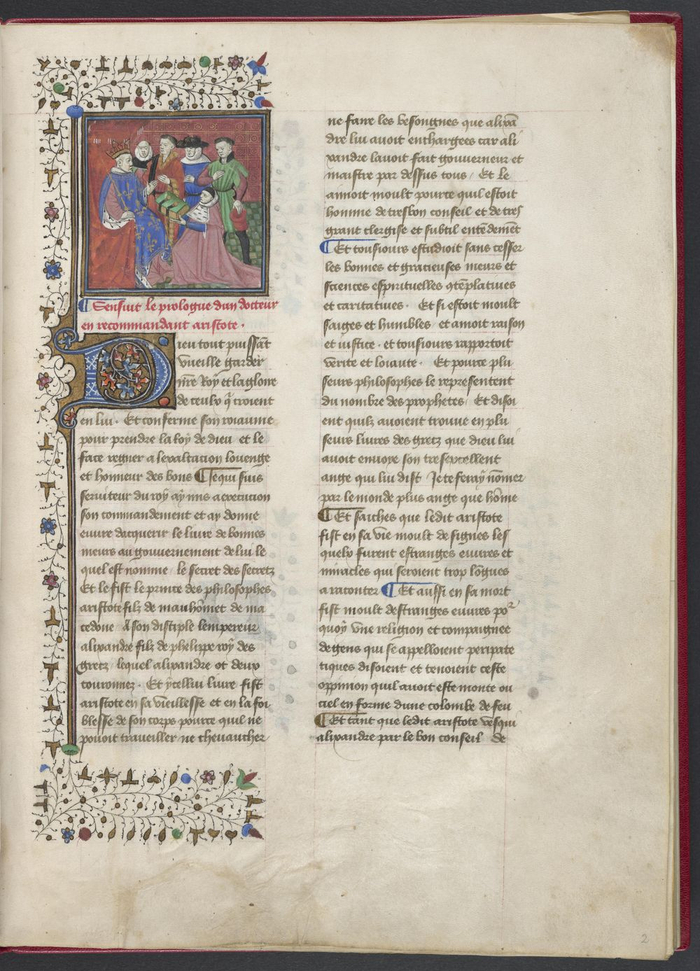 Sensuit le prologue dun docteur
en recommandant aristote.
Dieu tout puissãt
vueille garder
nr̃e Roy et la gloire
de ceulx q̃ croient
en lui. Et conferme son roiaume
pour prendre la loy de dieu et le
face regner a lexaltacion louenge
et honneur des bons ¶ Je qui suis
serviteur du roy ay mis a execucion
son commandement et ay donne
euvre dacquerir le livre de bonnes
meurs au gouvernement de lui le
quel est nomme le secret des secretz
Et le fist le prince des philosophes
aristote filz de mauhomet de ma
cedone A son disciple lempereur
alixandre filz de phelippe roy des
grecz lequel alixandre ot deux
couronnez. Et ycellui livre fist
aristote en sa vieillesse et en la foi
blesse de son corps pource quil ne
povoit traveiller ne chevaucher
ne faire les besongnes que alixã
dre lui avoit enchargees car ali
xandre lavoit fait gouverneur et
maistre par dessus tous. Et le
amoit moult pource quil estoit
homme de tresbon conseil et de tres
grant clergise et subtil entendemẽt
¶ Et tousiours estudioit sans cesser
les bonnes et gracieuses meurs et
sciences esperituelles cõtẽplatives
et caritatives. Et si estoit moult
saiges et humbles. et amoit raison
et iustice. et tousiours rapportoit
verite et loiaute. Et pource plu
seurs philosophes le representent
du nombre des prophetes. Et disoi
ent quilz avoient trouve en plu
seurs livres des grecz que dieu lui
avoit envoye son tresexcellent
ange qui lui dist Je te feray nõmer
par le monde plus ange que hõme
¶ Et saiches que ledit aristote
fist en sa vie moult de signes les
quelx furent estranges euvres et
miracles qui seroient trop lõgues
a raconter ¶ Et aussi en sa mort
fist moult destranges euvres po˞
quoy une religion et compaignee
de gens qui se appelloient peripate
tiques disoient et tenoient ceste
oppinion quil avoit este monte ou
ciel en forme dune colombe de feu
¶ Et tant que ledit aristote vesqui
alixandre par le bon conseil de
2